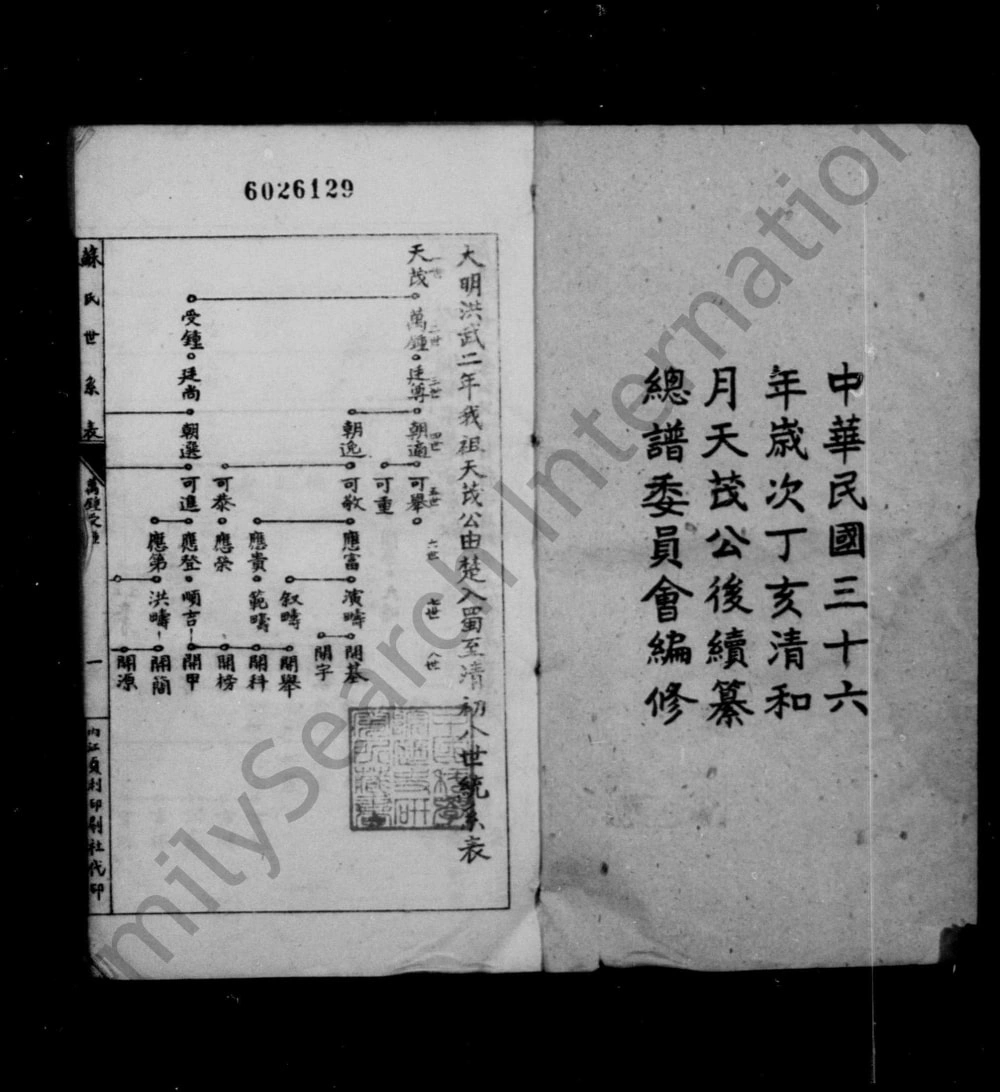 中華民國三十六
年歲次丁亥清和
月天茂公後續纂
總譜委員會編修
6026129
大明洪武二年我祖天茂公由楚入蜀至清初八世統系表
一世
二世
三世
四世
五世
六世
七世
八世
天茂
萬鍾
廷尊
朝適
可舉
可重
朝逸
可敬
應富
演疇
開基
開字
敘疇
開舉
應貴
範疇
開科
可泰
應榮
開榜
受鍾
廷尚
朝選
可進
應登
順吉
開甲
應第
洪疇
開簡
開源
蘇氏世系表
萬鍾受鍾
一
內江 利印刷社代印
FamilySearch International